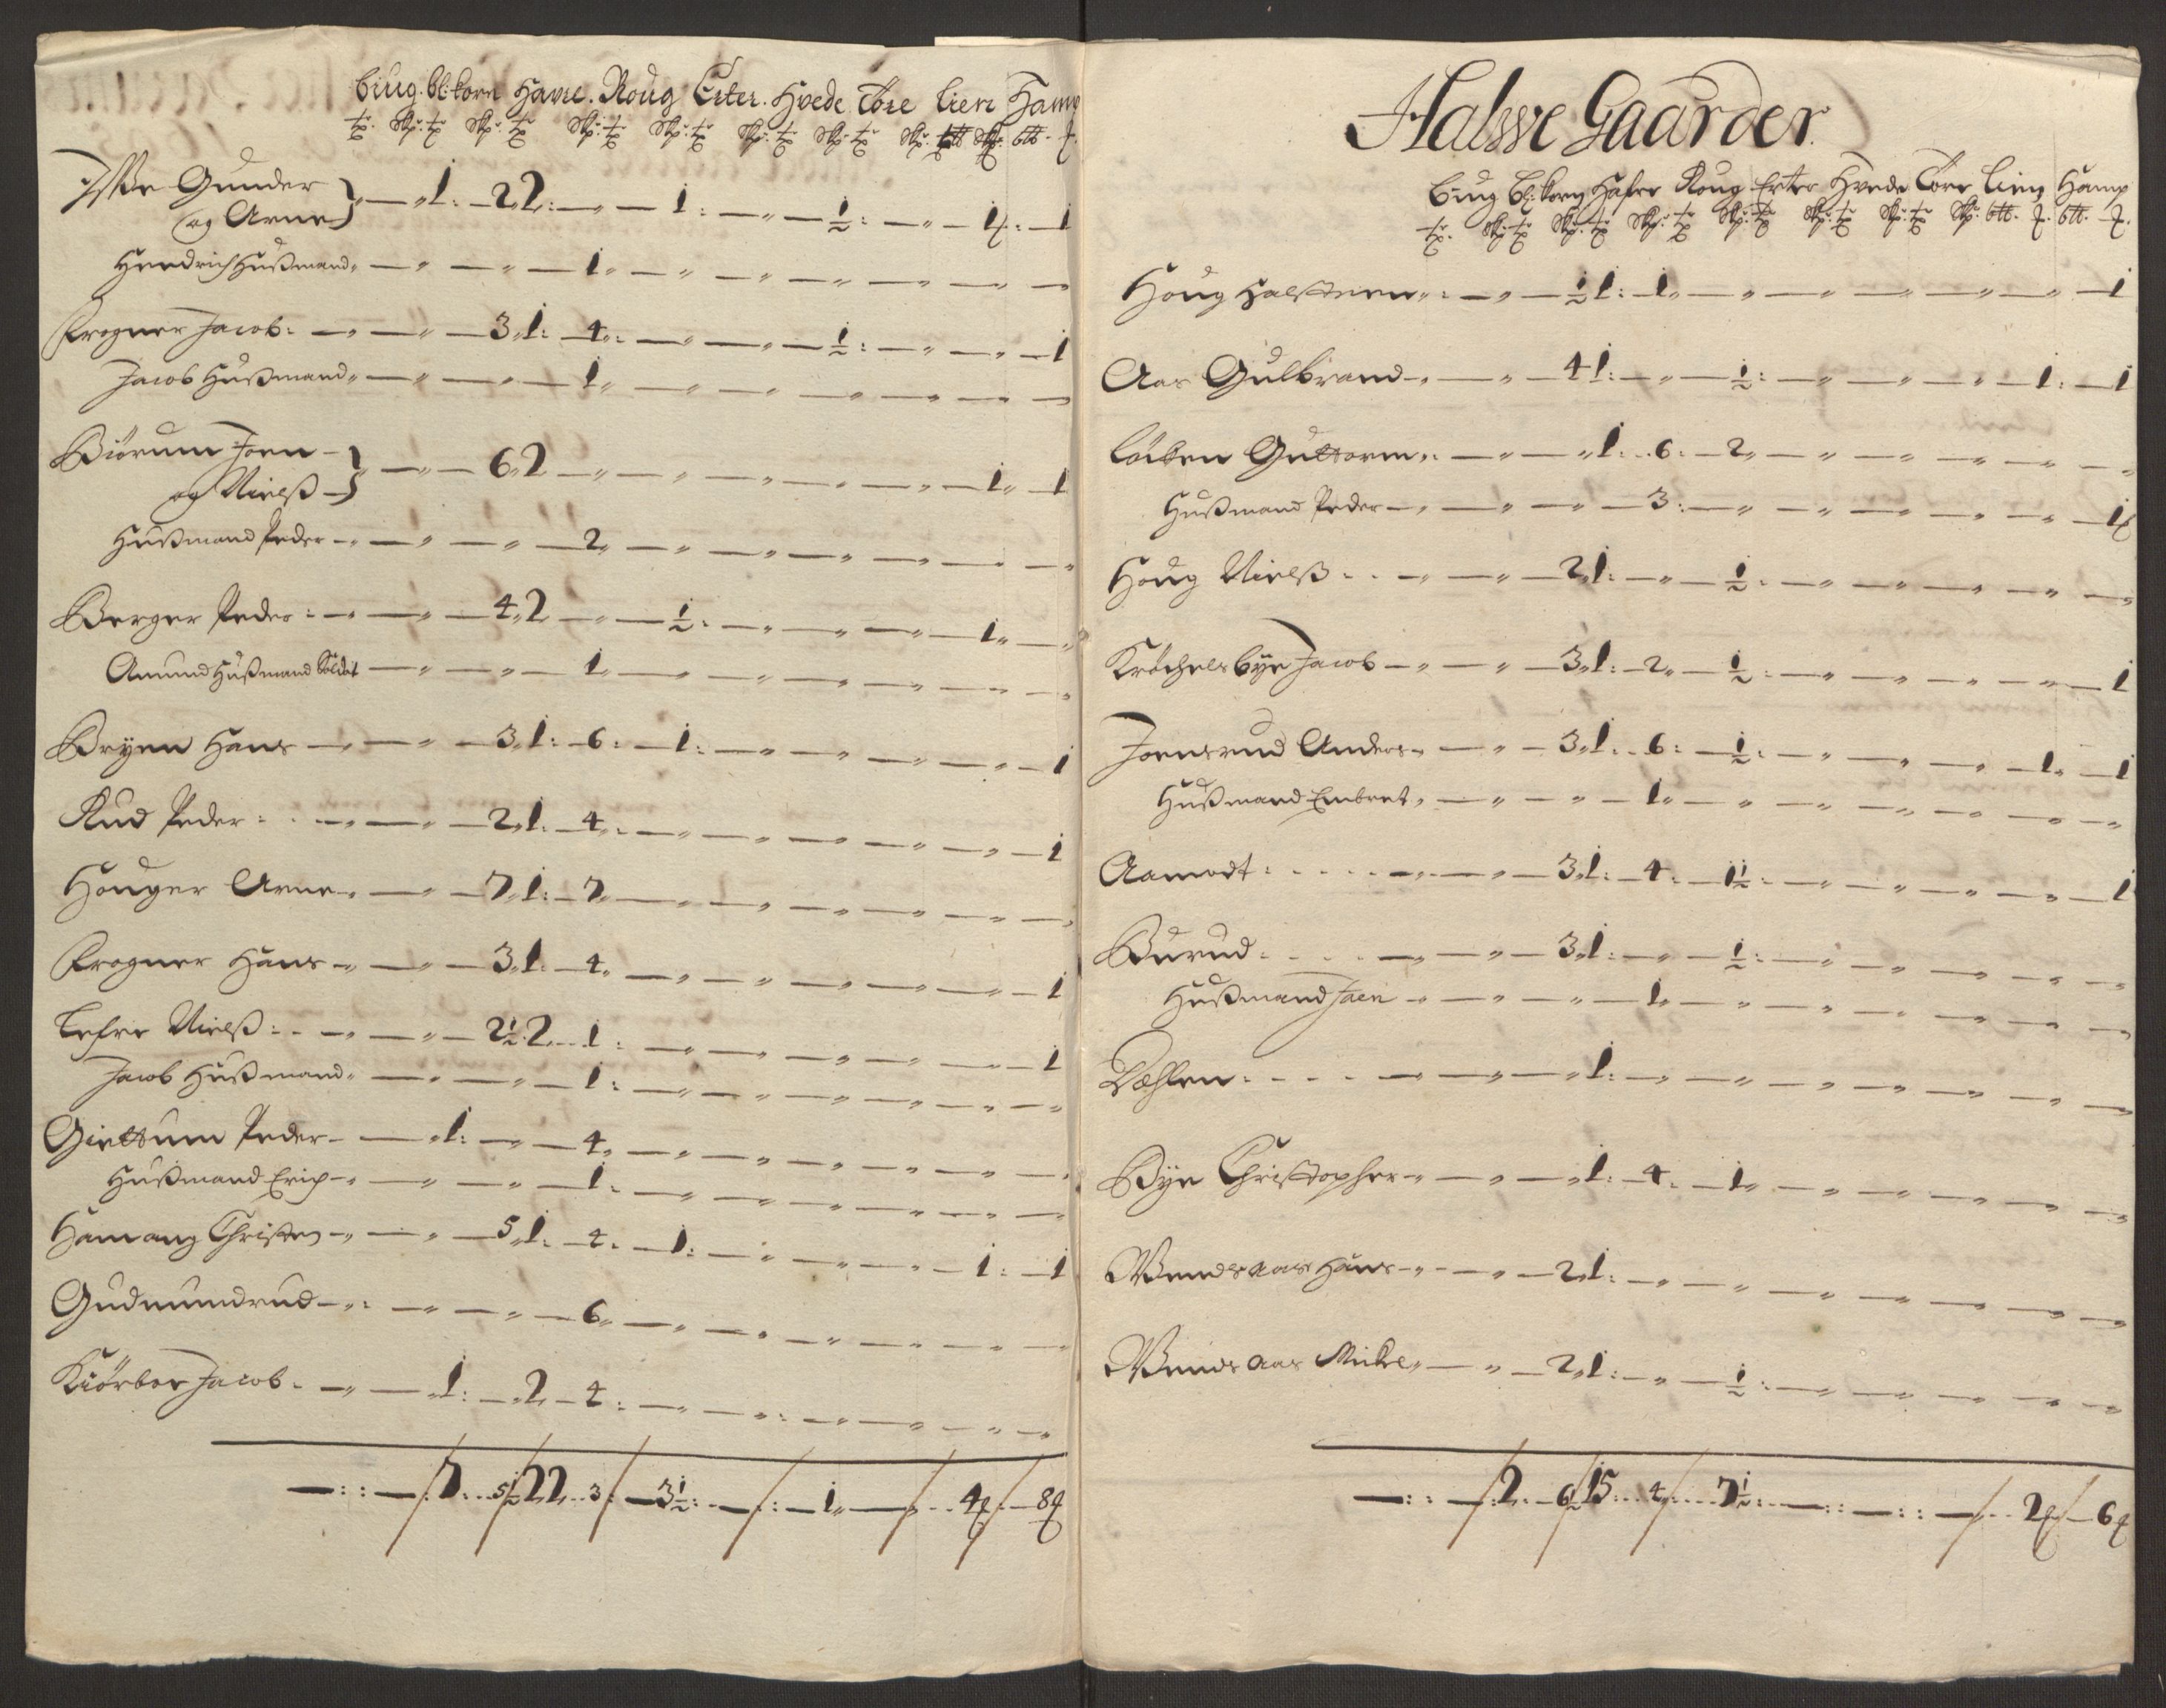 Biug. Bl:korn Havre. Roug Erter. Hvede Tore Lien Hamp
Gunder } — „1: 2„2„: — „ — 1: — „ — ½: — „ — 1 — 1
og Arne
Hendrich Hußmand „ — „ — „ — 1„ — „ — „ — „ — „ — „ —
Frogner Jacob: — „ — „ — 3„1: — 4„: — „ — „ — ½: — „ — „ — 1
Jacob Hußmand „ — „ — „ — 1„ — „ — „ — „ — „ — „ —
Biörum Joen } „ — „ — 6„2 — „ — „ — „ — „ — „ — 1„ — 1
og Nielß
Hußmand Peder — „ — „ — „ — 2„ — „ — „ — „ — „ — „ — „
Berger Peder: — „ — „ — 4„2 — „ — ½: — „ — „ — „ — 1„ — „
Amund Hußmand Soldat — „ — „ — 1„ — „ — „ — „ — „ — „ — „
Bryen Hans — „ — „ — 3„1: — 6: — 1: — „ — „ — „ — „ — 1
Rud Peder: — „ — „ — 2„1: — 4„: — „ — „ — „ — „ — „ — 1
Houger Arne — „ — „ — 7„1: — 7„ — „ — „ — „ — „ — „ — „
Frogner Hans — „ — „ — 3„1: — 4„ — „ — „ — „ — „ — „ — 1
Lefre Nielß: — „ — „ — 2½„2 — 1: — „ — „ — „ — „ — „ — 1
Jacob Hußmand „ — „ — „ — 1: — „ — „ — „ — „ — „ — „
Giettum Peder — — „1: — „ — 4„ — „ — „ — „ — „ — „ — „
Hußmand Erich — „ — „ — „ — 1: — „ — „ — „ — „ — „ — „
Hamang Christen — „ — „ — 5„1: — 4: — 1: — „ — „ — „ — 1: — 1
Gudmundrud — „: — „ — „ — 6„ — „ — „ — „ — „ — „ — „
Kiörboe Jacob: — „ — „1: — „2„ — 4: — „ — „: — „ — „ — „ — „
— : : — / 7 . . 5½ / 22 . . 3 / — 3½: . — / : : — 1„ — / „ . . 4 / — 8
Halwe Gaarder.
Biug Bl:korn Hafre Roug Erter Hvede Tore Lien Hamp
Houg Halsteen „: — „ — ½„1: — 1„ — „ — „ — „ — „ — „ — 1
Aas Gulbrand — „ — „ — 4„1: — „ — ½: — „ — „ — „ — 1: — 1
Löcken Guttorm „: — „ — „1: . 6: — 2„ — „ — „ — „ — „ — „
Hußmand Peder — „ — „ — „ — 3: — „ — „ — „ — „ — „ — 1
Houg Nielß: . . — „ — „ — 2„1: — „ — ½: — „ — „ — „ — „ — „
Kröchelsbye Jacob — „ — „ — 3„1: — 2„ — ½: — „ — „ — „ — „ — 1
Joensrud Anders „ — „ — 3„1: . 6: — ½: — „ — „ — „ — 1„ — 1
Hußmand Embret „ — „ — „ — 1„ — „ — „ — „ — „ — „ — „
Aamodt: . . . . — „ — „ — 3„1: — 4„ — 1½: — „ — „ — „ — „ — 1
Burud: . . . — „ — „ — 3„1: — „ — ½: — „ — „ — „ — „ — „
Hußmand Joen — „ — „ — „ — 1„ — „ — „ — „ — „ — „ — „
Dæhlen: . . . . — „ — „ — „1: — „ — „ — „ — „ — „ — „ — „
Bye Christopher — „ — „ — „1: — 4: — 1„ — „ — „ — „ — „ — „
Wendsaas Hans — „ — „ — 2„1: — „ — „ — „ — „ — „ — „ — „
Wendsaas Mickel „ — „ — 2„1: — „ — ½: — „ — „ — „ — „ — „
— : : — / 2 . . 6½ / 15 . . 4 / . . . 7½: — : : — : : — / . . 2 / — 6